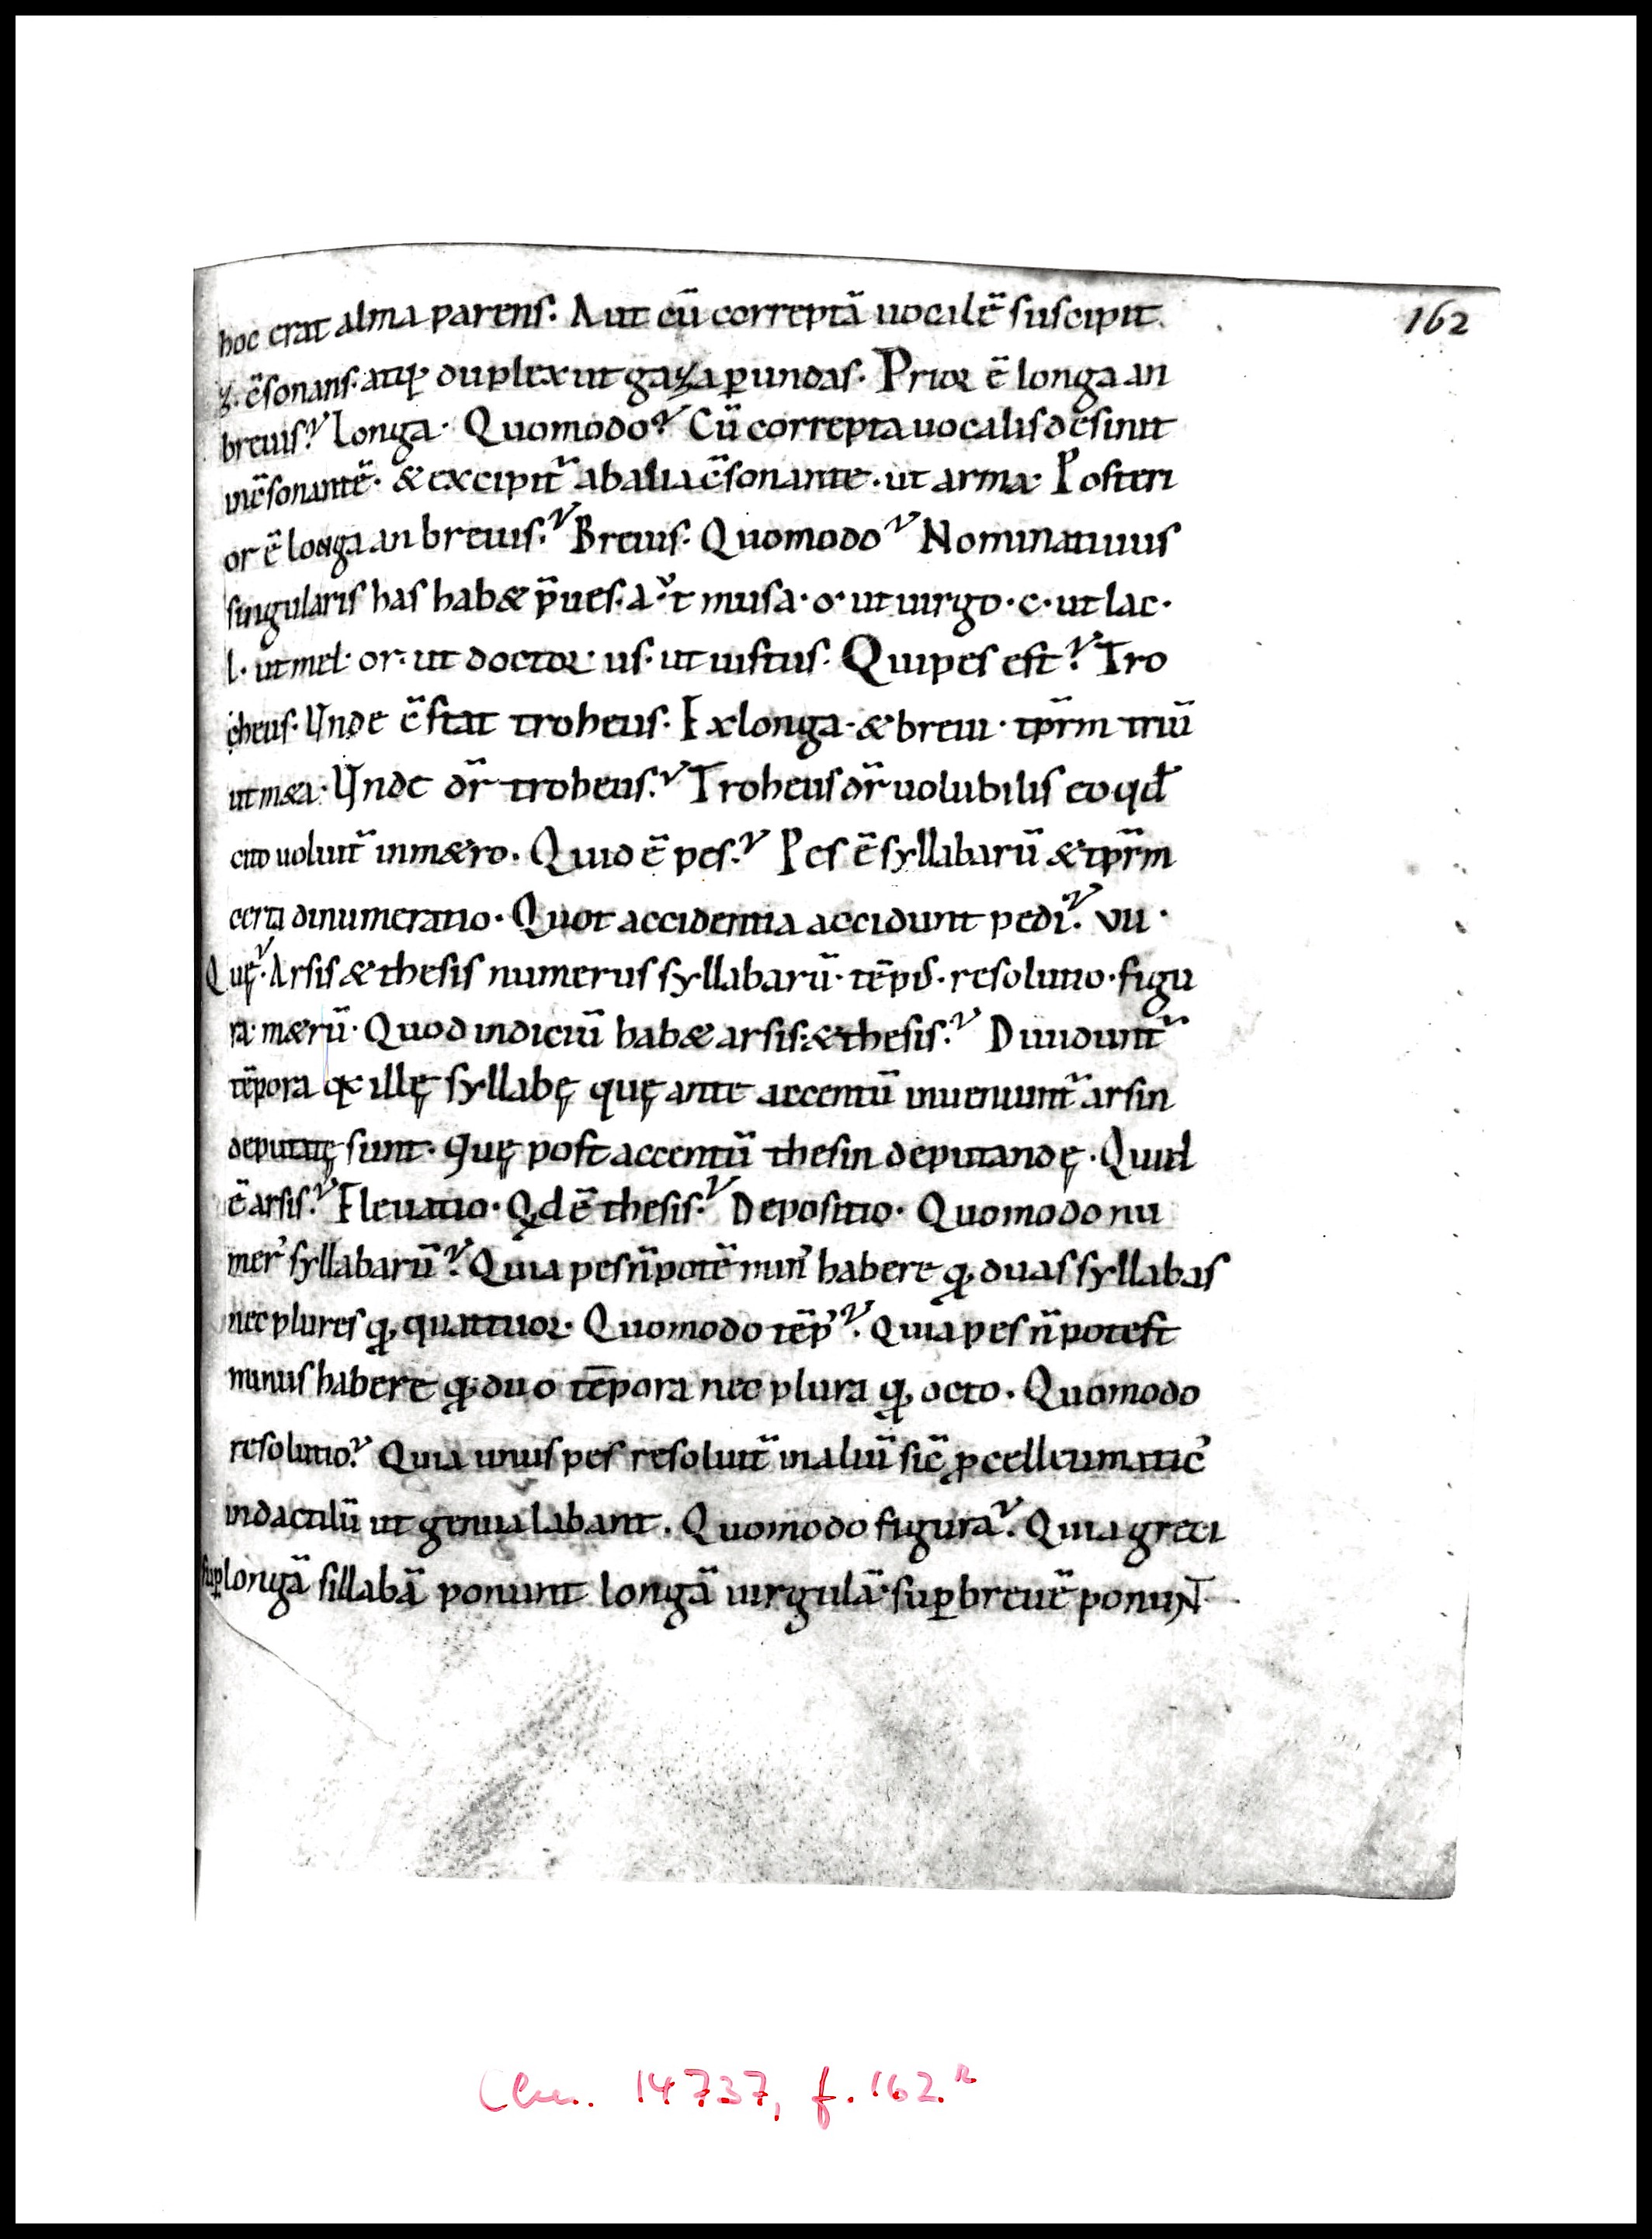 hoc erat alma parens. Aut cū correptā uocalē suscipit
162
z. c̄sonans. atq; duplex ut gaza ꝑ undas. Prior ē longa an
breuis? Longa. Quomodo? Cū correpta uocalis desinit
in c̄sonantē. & excipit̄ ab alia c̄sonante. ut arma. Posteri
or ē longa an breuis? Breuis. Quomodo? Nominatiuus
singularis has hab& p̄ues. a. ut musa. o. ut uirgo. c. ut lac.
l. ut mel. or. ut doctor. us. ut iustus. Qui pes est? Tro
cheus. Unde c̄stat troheus. Ex longa. & breui. tp̄rm triū
ut m&a. Unde dr̄ troheus? Troheus dr̄ uolubilis eo qd̄
cito uoluit̄ in m&ro. Quid ē pes? Pes ē syllabarū & tp̄rm
certa dinumeratio. Quot accidentia accidunt pedi? VII.
Quę? Arsis & thesis numerus syllabarū. tēpus. resolutio. figu
ra. m&rū. Quod indiciū hab& arsis. & thesis? Diuidunt̄
tēpora q; illę syllabę quę ante accentū inueniunt̄ arsin
deputatę sunt. Quę post accentū thesin deputandę. Quid
ē arsis? Eleuatio. Qd ē thesis? Depositio. Quomodo nu
mer᾽ syllabarū? Quia pes n̄ potē min᾽ habere qͣ duas syllabas
nec plures qͣ quattuor. Quomodo tēp᾽? Quia pes n̄ potest
minus habere qͣ duo tēpora nec plura qͣ octo. Quomodo
resolutio? Quia unus pes resoluit̄ in aliū sic̄ ꝓcelleumatic᾽
in dactilū ut genua labant. Quomodo figura? Quia greci
suꝑ longā sillabā ponunt longā uirgulā. suꝑ breuē ponunt
Clm. 14737, f. 162.r